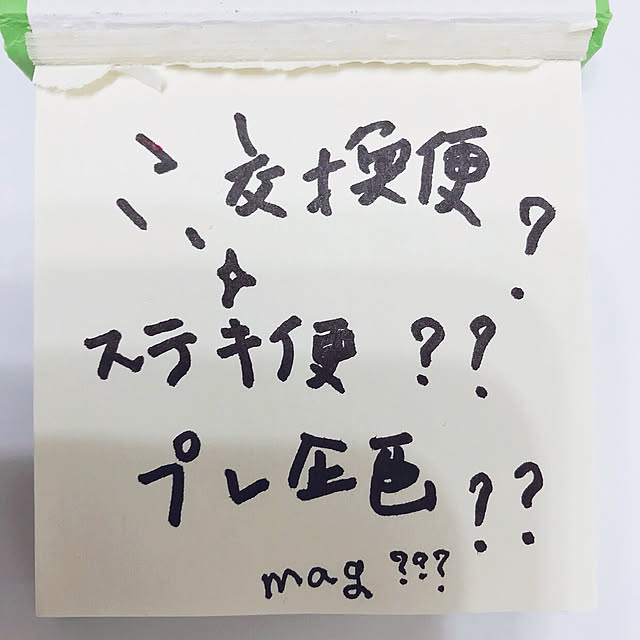 交換便?
ステキ便??
プレ企画??
mag???